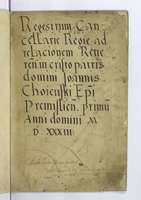 Regestrum Can
cellarie Regie ad
relacionem Reue
ren in cristo patris
domini Joannis
Choienski Epi
Premislien primū
Anni domini M
D XXXIII